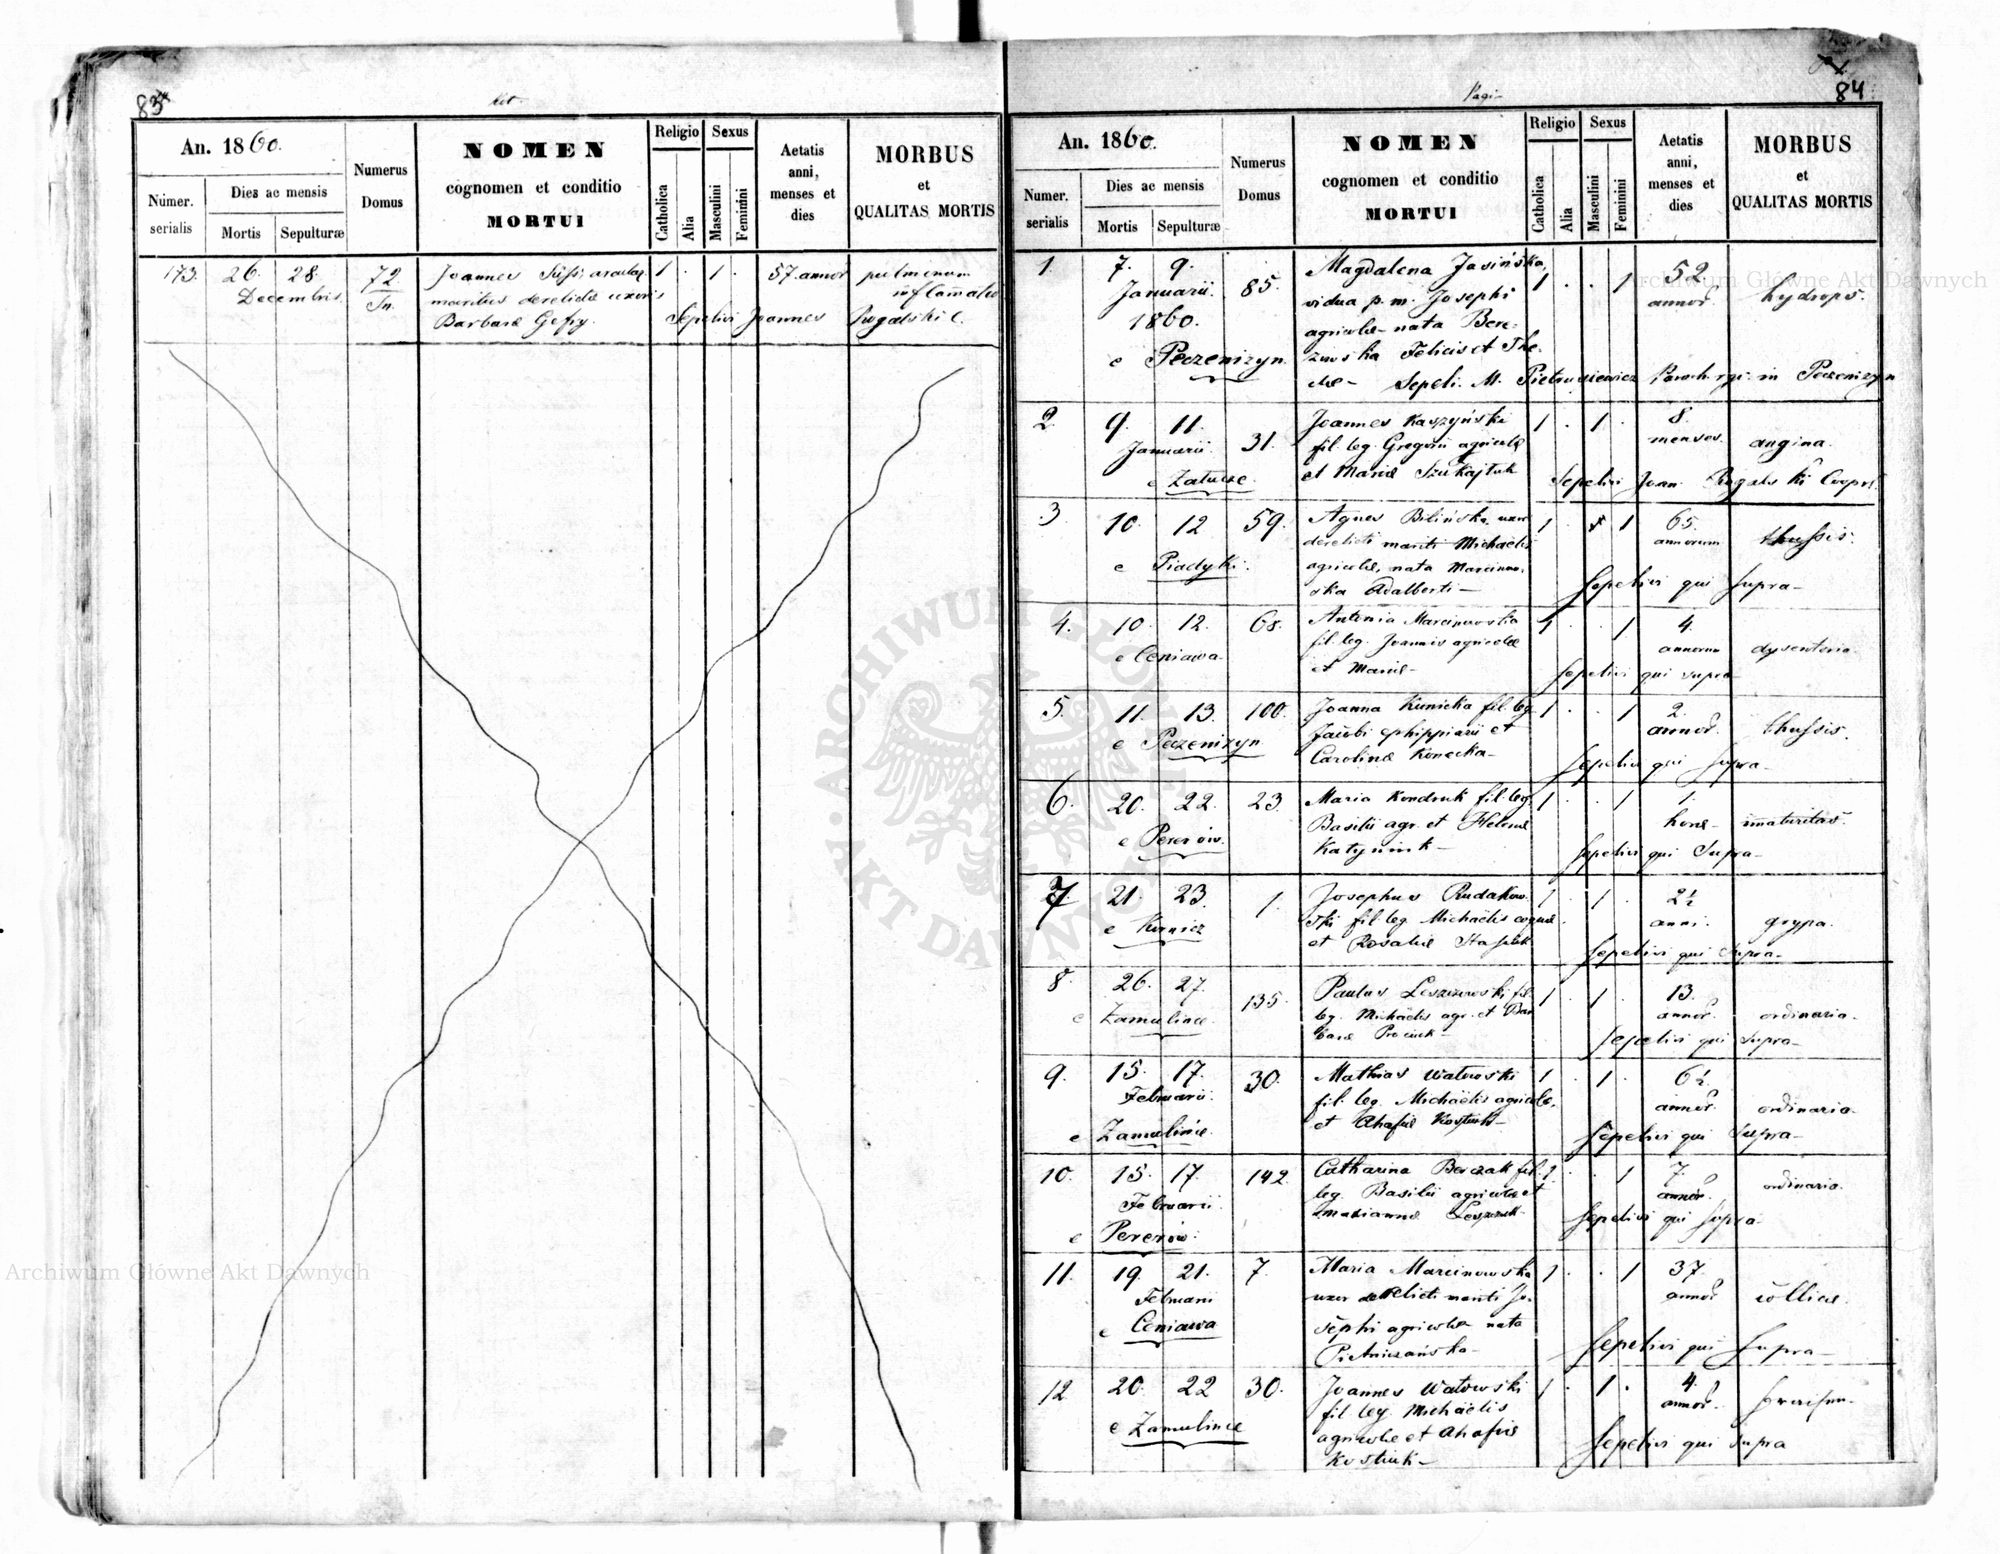 83
Kot.
An. 1860.
Numer. serialis
Dies ac mensis
Mortis
Sepulturæ
Numerus Domus
NOMEN
cognomen et conditio
MORTUI
Religio
Catholica
Alia
Sexus
Masculini
Feminini
Aetatis anni, menses et dies
MORBUS
et
QUALITAS MORTIS
173. 26. 28. 72 Joannes arcular. 1 . 1 . 57. annor pulmonum
Decembris. In. maritus derelictæ uxoris inflamatio
Barbaræ Gefry. Sepelivi Joannes Rugalski C.
84
Pagi
An. 1860.
Numer. serialis
Dies ac mensis
Mortis
Sepulturæ
Numerus Domus
NOMEN
cognomen et conditio
MORTUI
Religio
Catholica
Alia
Sexus
Masculini
Feminini
Aetatis anni, menses et dies
MORBUS
et
QUALITAS MORTIS
1. 7. 9. 85. Magdalena Jasińska, 1 . . 1 52. hydrops.
Januarii. vidua p. m. Josephi annor
1860. agricolæ nata Bere-
e Peczenizyn zowska Felicis et The-
clæ Sepeli. M. Pietrusiewicz Paroch. rgi. in Peczenizyn
2. 9. 11. 31. Joannes Kaszyński 1 . 1 . 8. angina.
Januarii. fil. leg. Gregorii agricolæ menses
e Zalucze. et Mariæ Szukajtuk Sepelivi Joan. Rugalski Coop.
3 10. 12 59. Agnes Bilińska uxor 1 . 1 65. thussis.
derelicti mariti Michaëlis annorum
e Piadyki. agricolæ, nata Marcinow-
ska Adalberti Sepelivi qui supra
4. 10. 12. 68. Antonia Marcinowska 1 . . 1 4. dysenteria
fil. leg. Joannis agricolæ annorum
e Ceniawa et Mariæ Sepelivi qui supra
5. 11. 13. 100. Joanna Kunicka fil. leg. 1 . . 1 2. thussis.
Jacobi ephippiarii et annor.
e Peczenizyn Carolinæ Konecka Sepelivi qui supra
6. 20. 22. 23. Maria Kondruk fil. leg. 1 . . 1 1. immaturitas.
Basilii agr. et Helenæ horæ
e Pererów. Katyniuk Sepelivi qui supra
7. 21. 23. 1. Josephus Rudakow- 1 . 1 . 2½ grypa.
ski fil. leg. Michaëlis anni.
e Kornicz et Rosaliæ Sepelivi qui supra
8. 26. 27. 135. Paulus Leszczowski fil. 1 . 1 . 13. ordinaria.
leg. Michaëlis agr. et Bar annor.
e Zamulince. baræ Prociuk Sepelivi qui supra
9. 15. 17. 30. Mathias Watowski 1 . 1 . 6½. ordinaria
Februarii. fil. leg. Michaëlis agricolæ, annor.
e Zamulince. et Ahafiæ Kostiuk Sepelivi qui supra
10. 15. 17. 142. Catharina Berczak fil. 1. . . 1 7. ordinaria.
Februarii. leg. Basilii agricolæ et annor.
e Pererów. Mariannæ Leszczuk Sepelivi qui supra
11. 19. 21. 7. Maria Marcinowska 1 . . 1 37. collica.
Februarii uxor derelicti mariti Jo- annor
e Ceniawa sephi agricolæ nata
Pietniczańska Sepelivi qui supra
12 20. 22 30. Joannes Watowski 1 . 1 . 4.
fil. leg. Michaëlis annor.
e Zamulince agricolæ et Ahafiæ
Kostiuk Sepelivi qui supra
Archiwum Główne Akt Dawnych
Archiwum Główne Akt Dawnych
ARCHIWUM GŁÓWNE AKT DAWNYCH